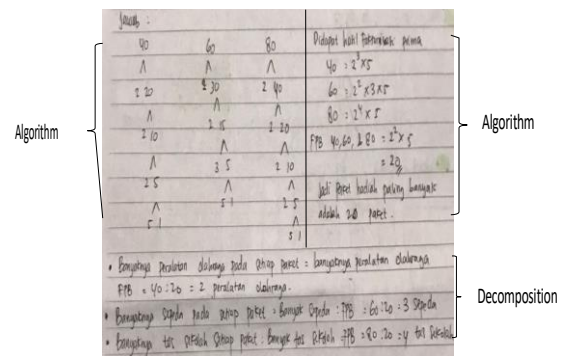 Jawab :
40 60 80
2 20 2 30 2 40
2 10 2 15 2 20
2 5 3 5 2 10
5 1 5 1 2 5
5 1
Didapat hasil faktorisasi prima
40 = 2³ x 5
60 = 2² x 3 x 5
80 = 2⁴ x 5
FPB 40, 60, & 80 = 2² x 5
= 20
Jadi Paket hadiah paling banyak
adalah 20 paket.
Algorithm
Algorithm
• Banyaknya peralatan olahraga pada setiap paket = banyaknya peralatan olahraga
FPB = 40 : 20 = 2 peralatan olahraga.
• Banyaknya sepeda pada setiap paket = Banyak sepeda : FPB = 60 : 20 = 3 sepeda
• Banyaknya tas sekolah setiap paket : Banyak tas sekolah FPB = 80 : 20 = 4 tas sekolah
Decomposition